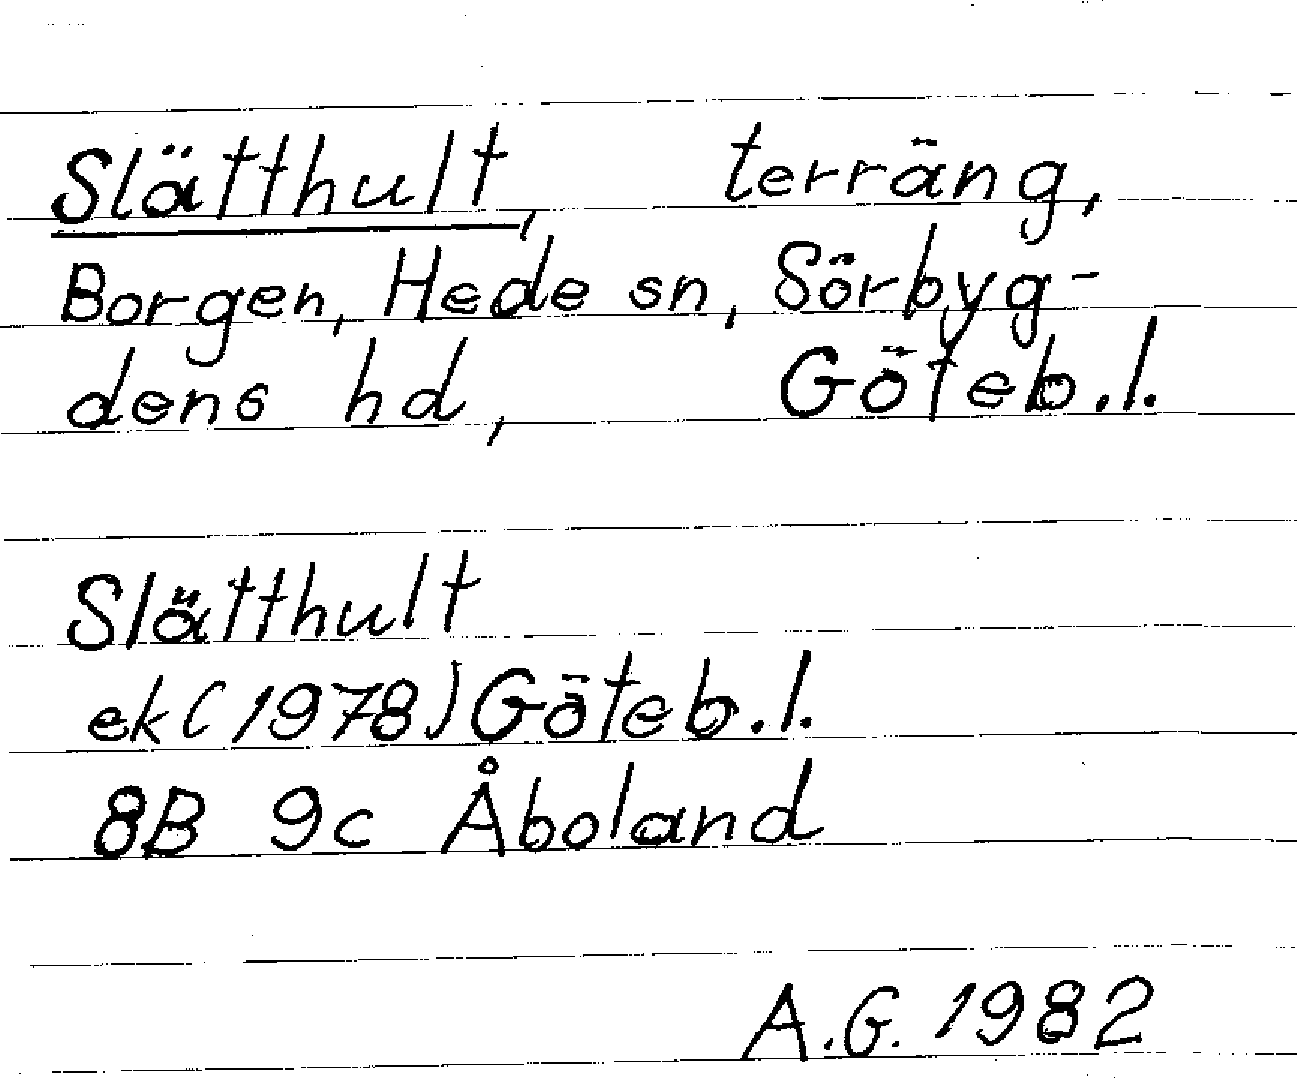 Slätthult, terräng,
Borgen, Hede sn, Sörbyg-
dens hd, Göteb.l.
Slätthult
ek (1978) Göteb.l.
8B 9c Åboland
A.G. 1982